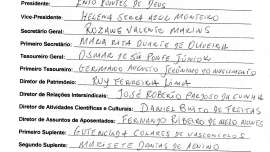 Presidente: ENIO PONTES DE DEUS
Vice-Presidente: HELENA SERRA AZUL MONTEIRO
Secretário Geral: ROZANE VALENTE MARINS
Primeiro Secretário: MARIA RITA DUARTE DE OLIVEIRA
Tesoureiro Geral: OSMAR DE SÁ PONTE JÚNIOR
Primeiro Tesoureiro: GERMANO AUGUSTO JERÔNIMO DO NASCIMENTO
Diretor de Patrimônio: RUY FERREIRA LIMA
Diretor de Relações Intersindicais: JOSÉ ROBERTO FEIJOSA DA CUNHA
Diretor de Atividades Científicas e Culturais: DANIEL BRITO DE FREITAS
Diretor de Assuntos de Aposentados: FERNANDO RIBEIRO DE MELO NUNES
Primeiro Suplente: COLARES DE VASCONCELOS
Segundo Suplente: MARISETE DANTAS DE AQUINO